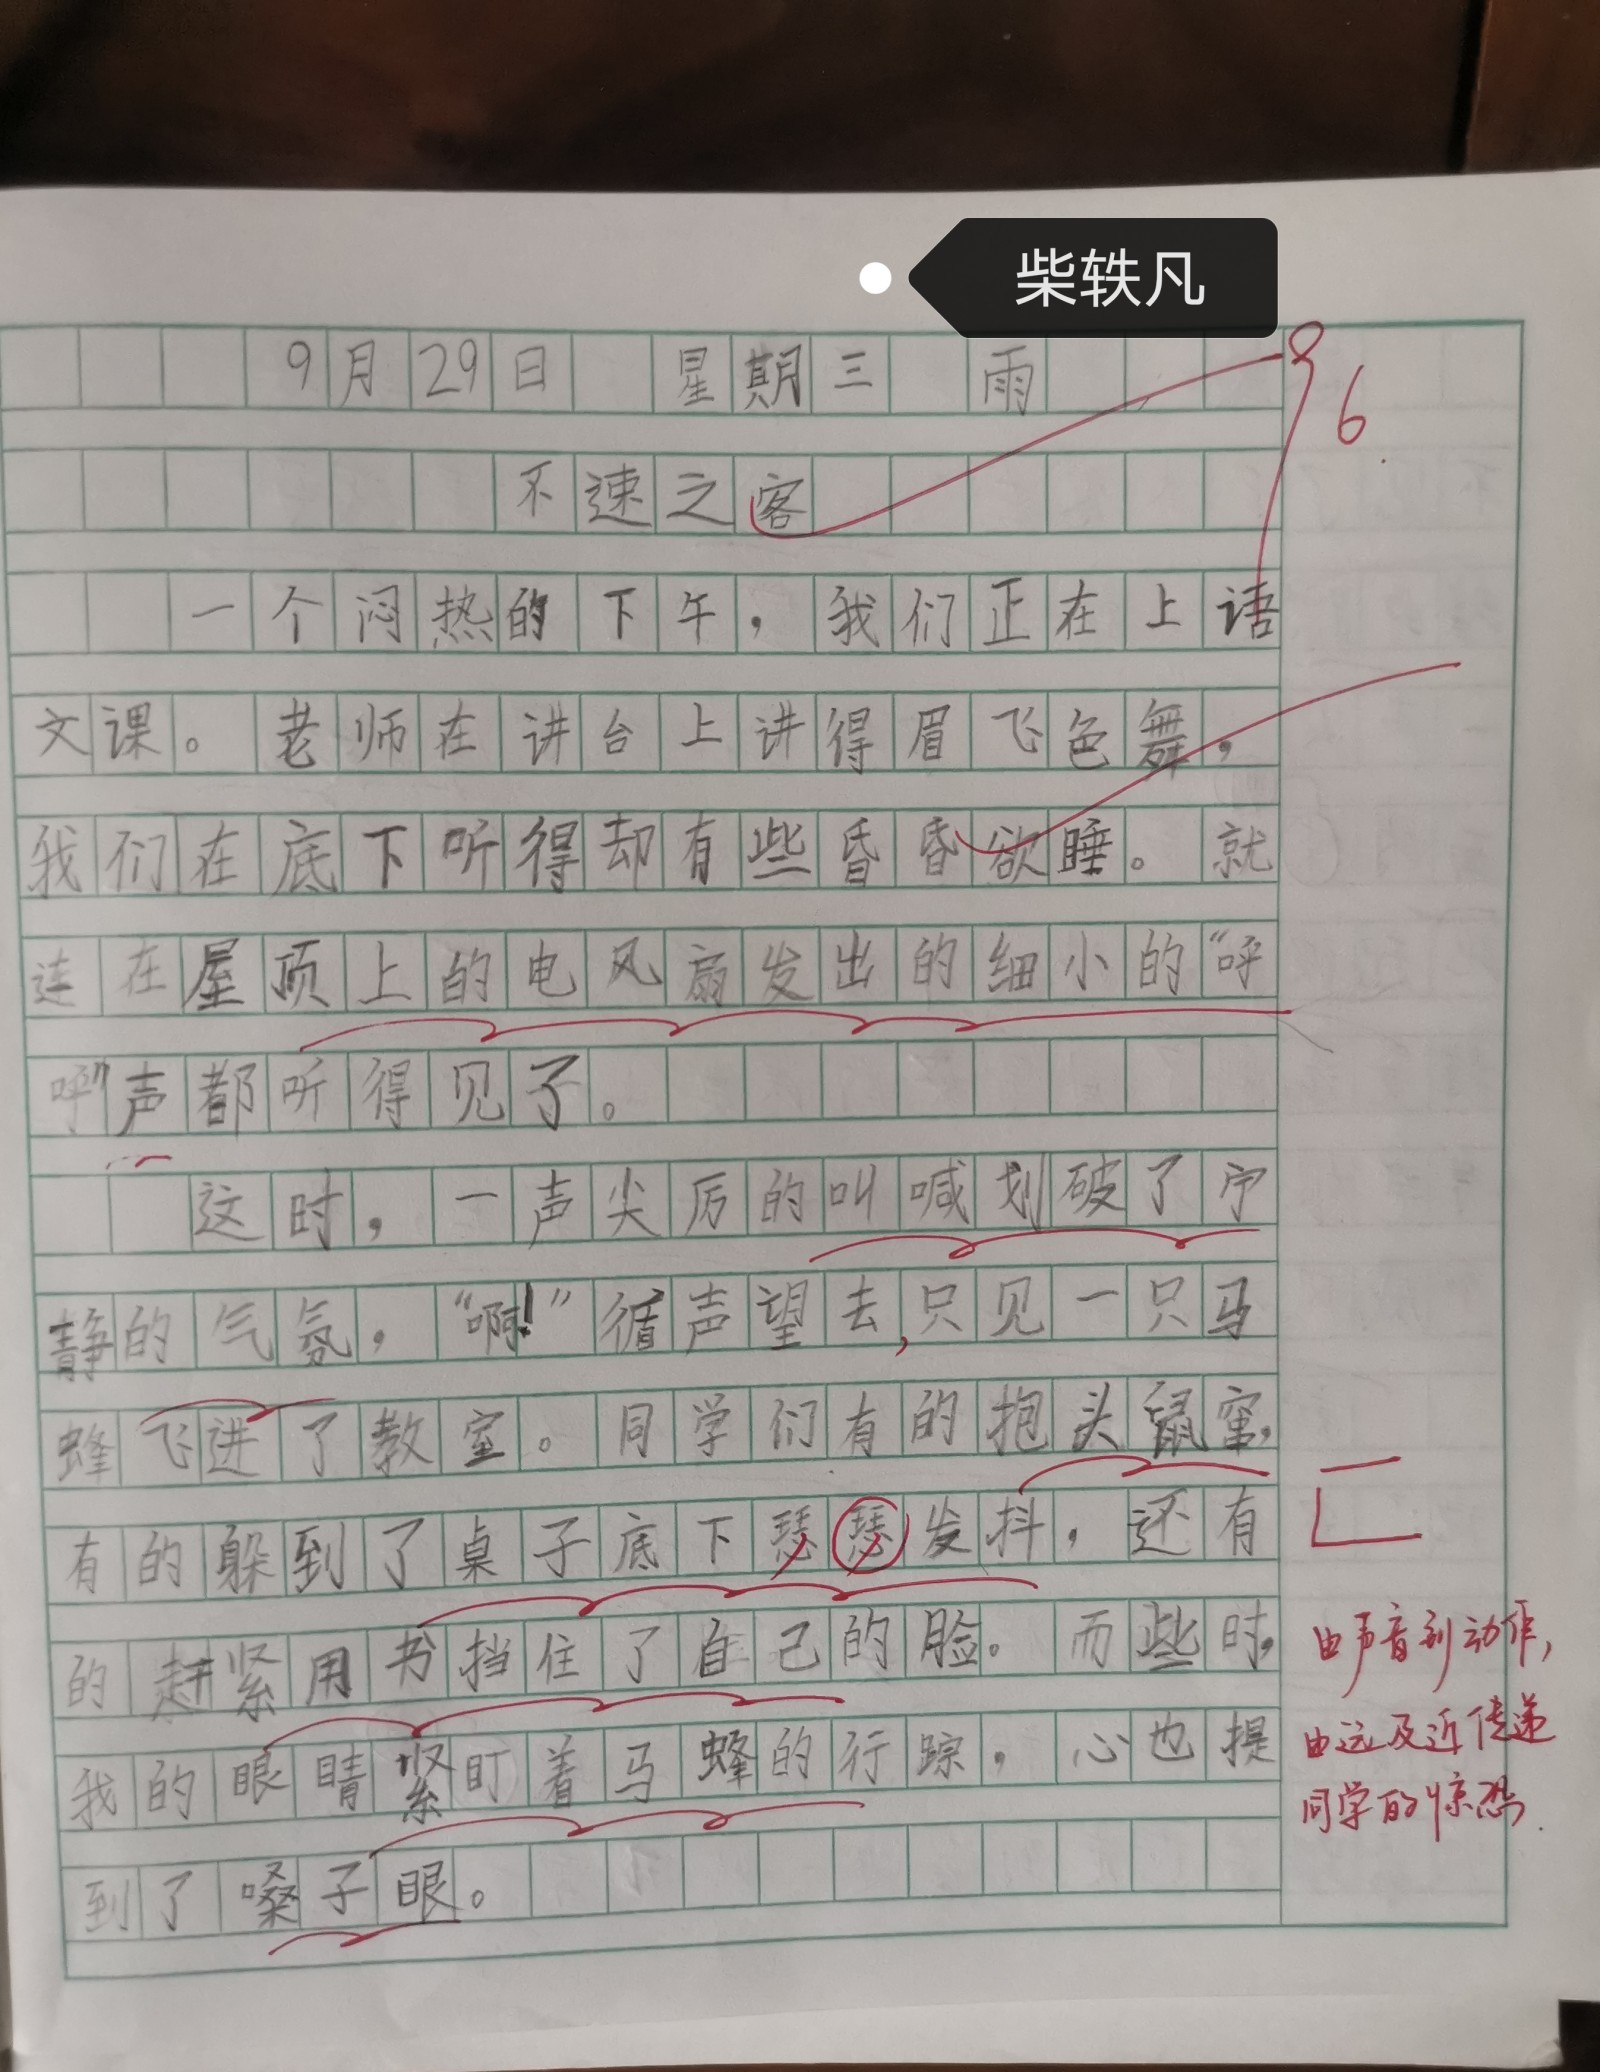 柴轶凡
9月29日 星期三 雨
96
不速之客
一个闷热的下午，我们正在上语
文课。老师在讲台上讲得眉飞色舞，
我们在底下听得却有些昏昏欲睡。就
连在屋顶上的电风扇发出的细小的“呼
呼”声都听得见了。
这时，一声尖厉的叫喊划破了宁
静的气氛，“啊！”循声望去，只见一只马
蜂飞进了教室。同学们有的抱头鼠窜，
有的躲到了桌子底下瑟瑟发抖，还有
的赶紧用书挡住了自己的脸。而些时，
我的眼睛紧盯着马蜂的行踪，心也提
到了嗓子眼。
由声音到动作，
由远及近传递
同学的惊恐.